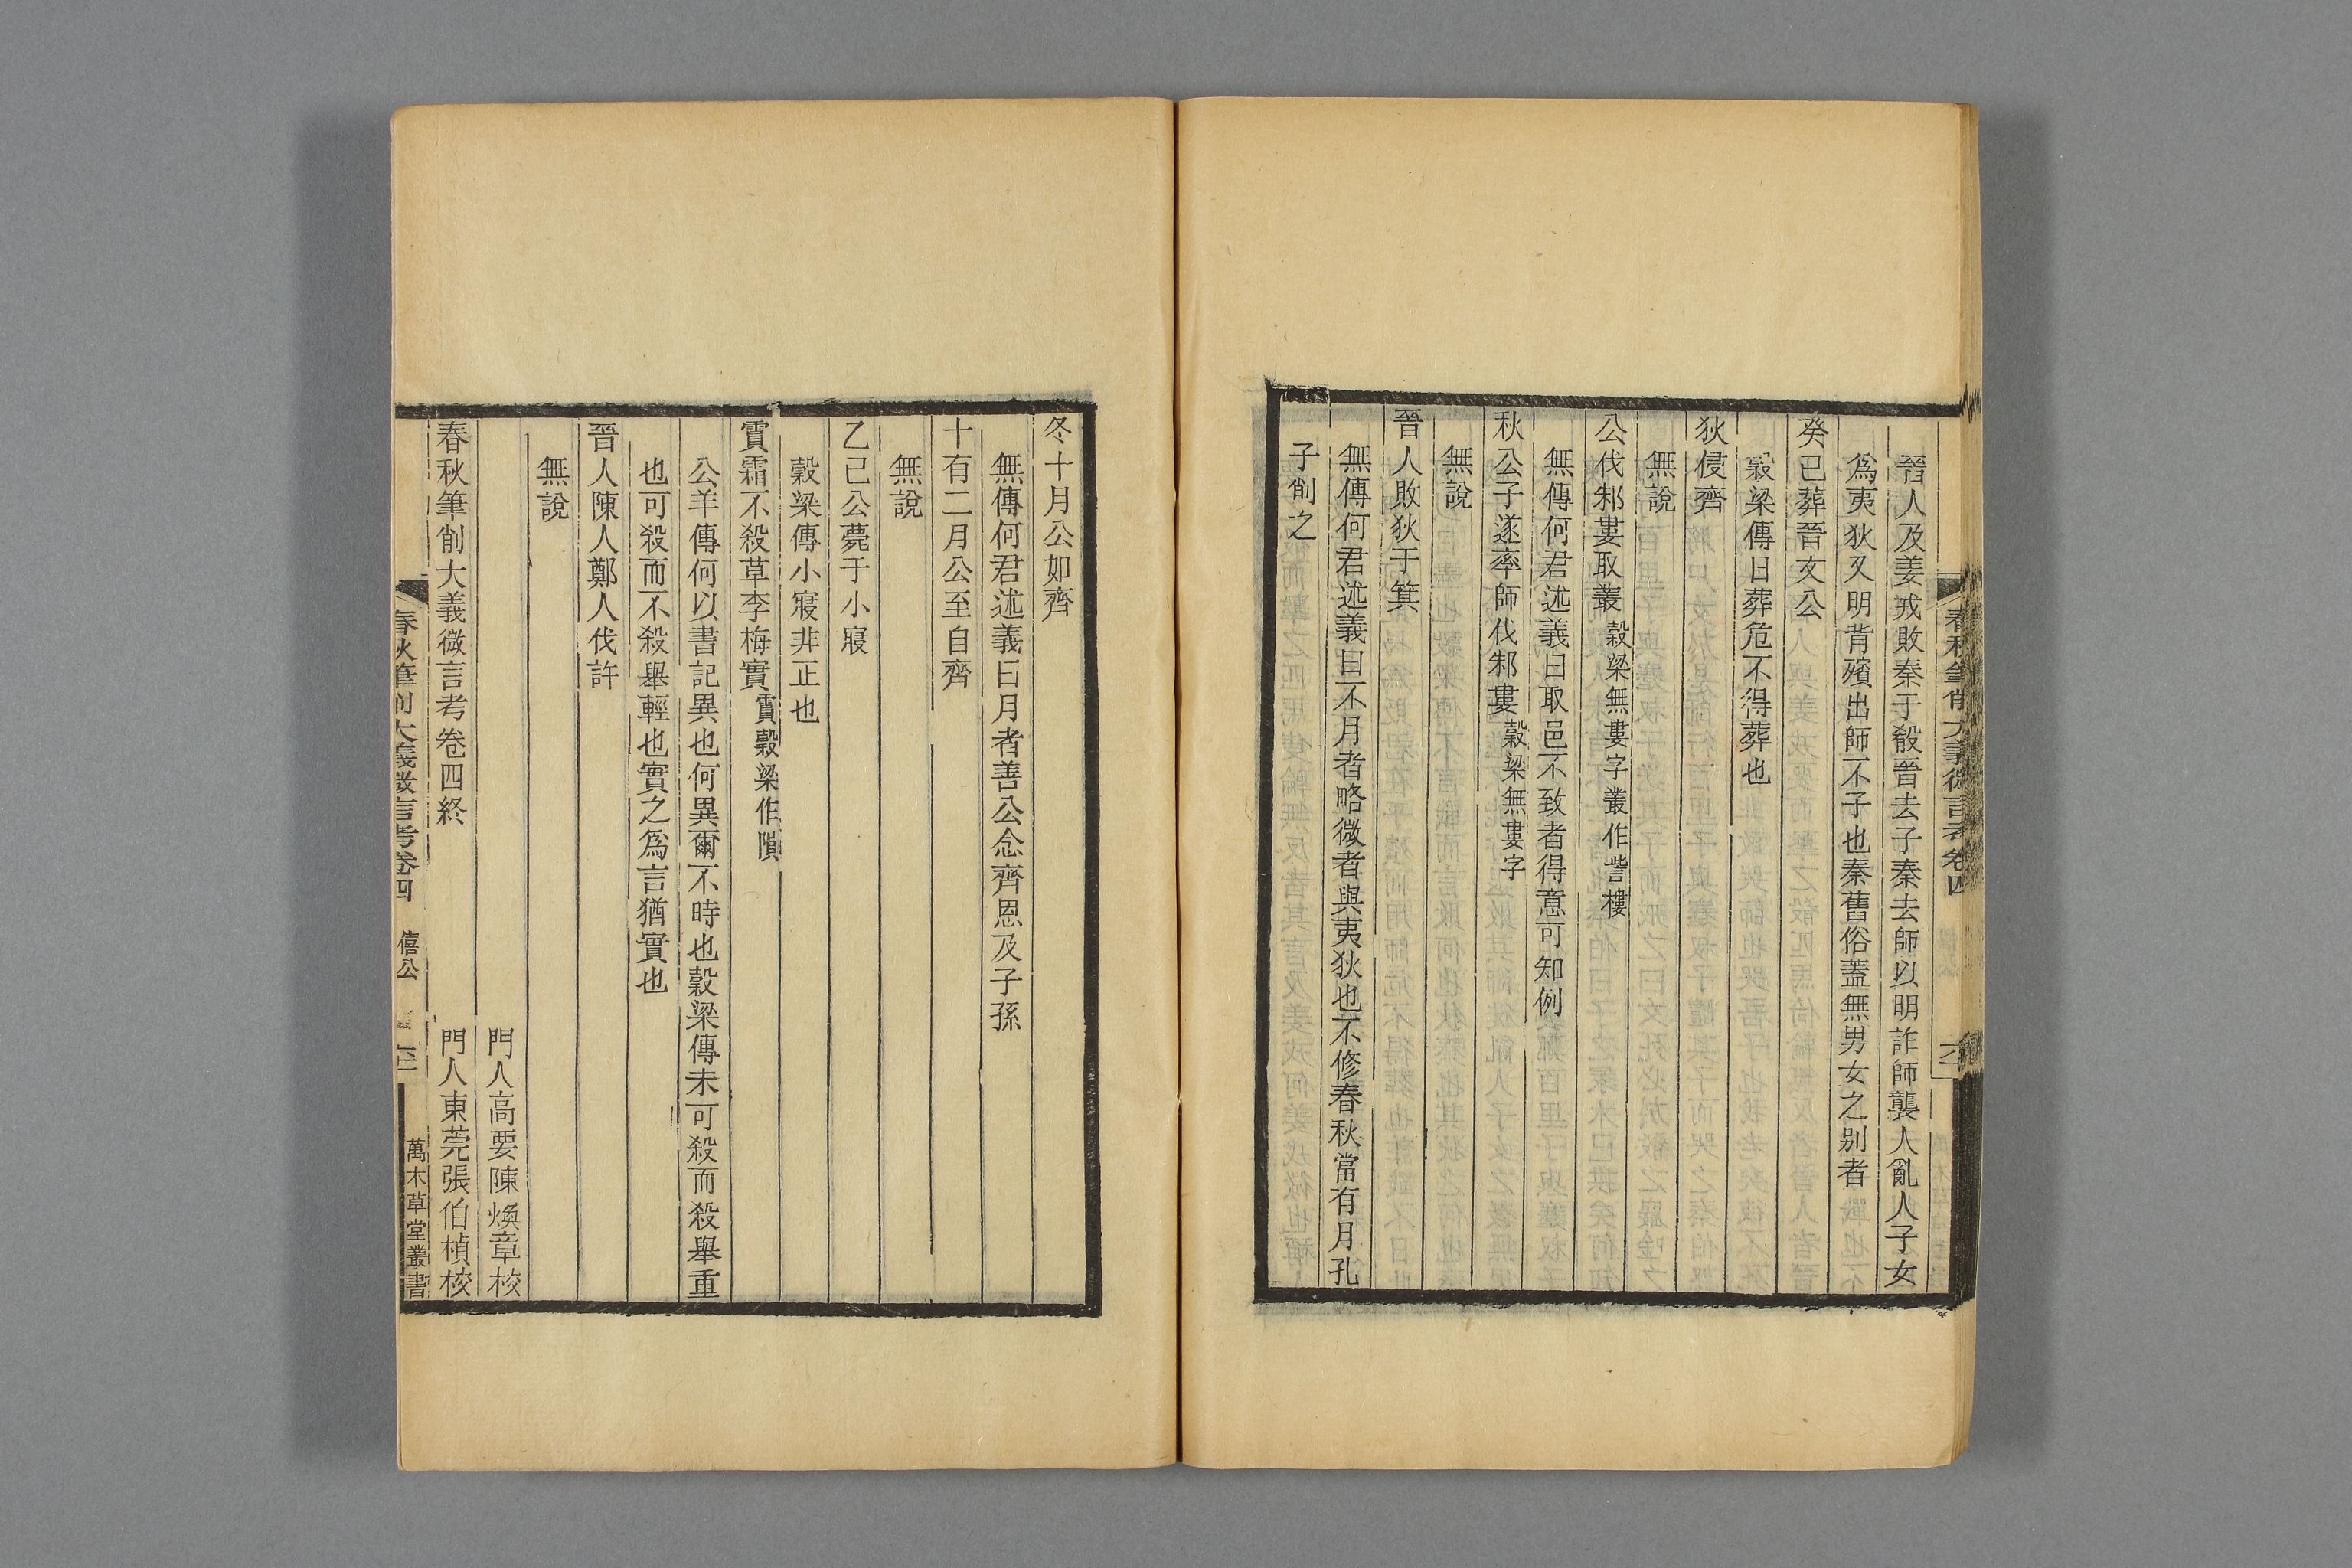 春秋筆削大義微言考卷四
晉人及姜戎敗秦于殽晉去子秦去師以明詐師襲人亂人子女
爲夷狄又明背殯出師不子也秦舊俗蓋無男女之别者
癸巳葬晉文公
穀梁傳日葬危不得葬也
狄侵齊
無說
公伐邾婁取叢穀梁無婁字叢作訾樓
無傳何君述義曰取邑不致者得意可知例
秋公子遂率師伐邾婁穀梁無婁字
無說
晉人敗狄于箕
無傳何君述義曰不月者略微者與夷狄也不修春秋當有月孔
子削之
冬十月公如齊
無傳何君述義曰月者善公念齊恩及子孫
十有二月公至自齊
無說
乙巳公薨于小寢
穀梁傳小寢非正也
霣霜不殺草李梅實霣穀梁作隕
公羊傳何以書記異也何異爾不時也穀梁傳未可殺而殺舉重
也可殺而不殺舉輕也實之爲言猶實也
晉人陳人鄭人伐許
無說
門人高要陳煥章校
春秋筆削大義微言考卷四終 門人東莞張伯楨校
春秋筆削大義微言考卷四 僖公 萬木草堂叢書